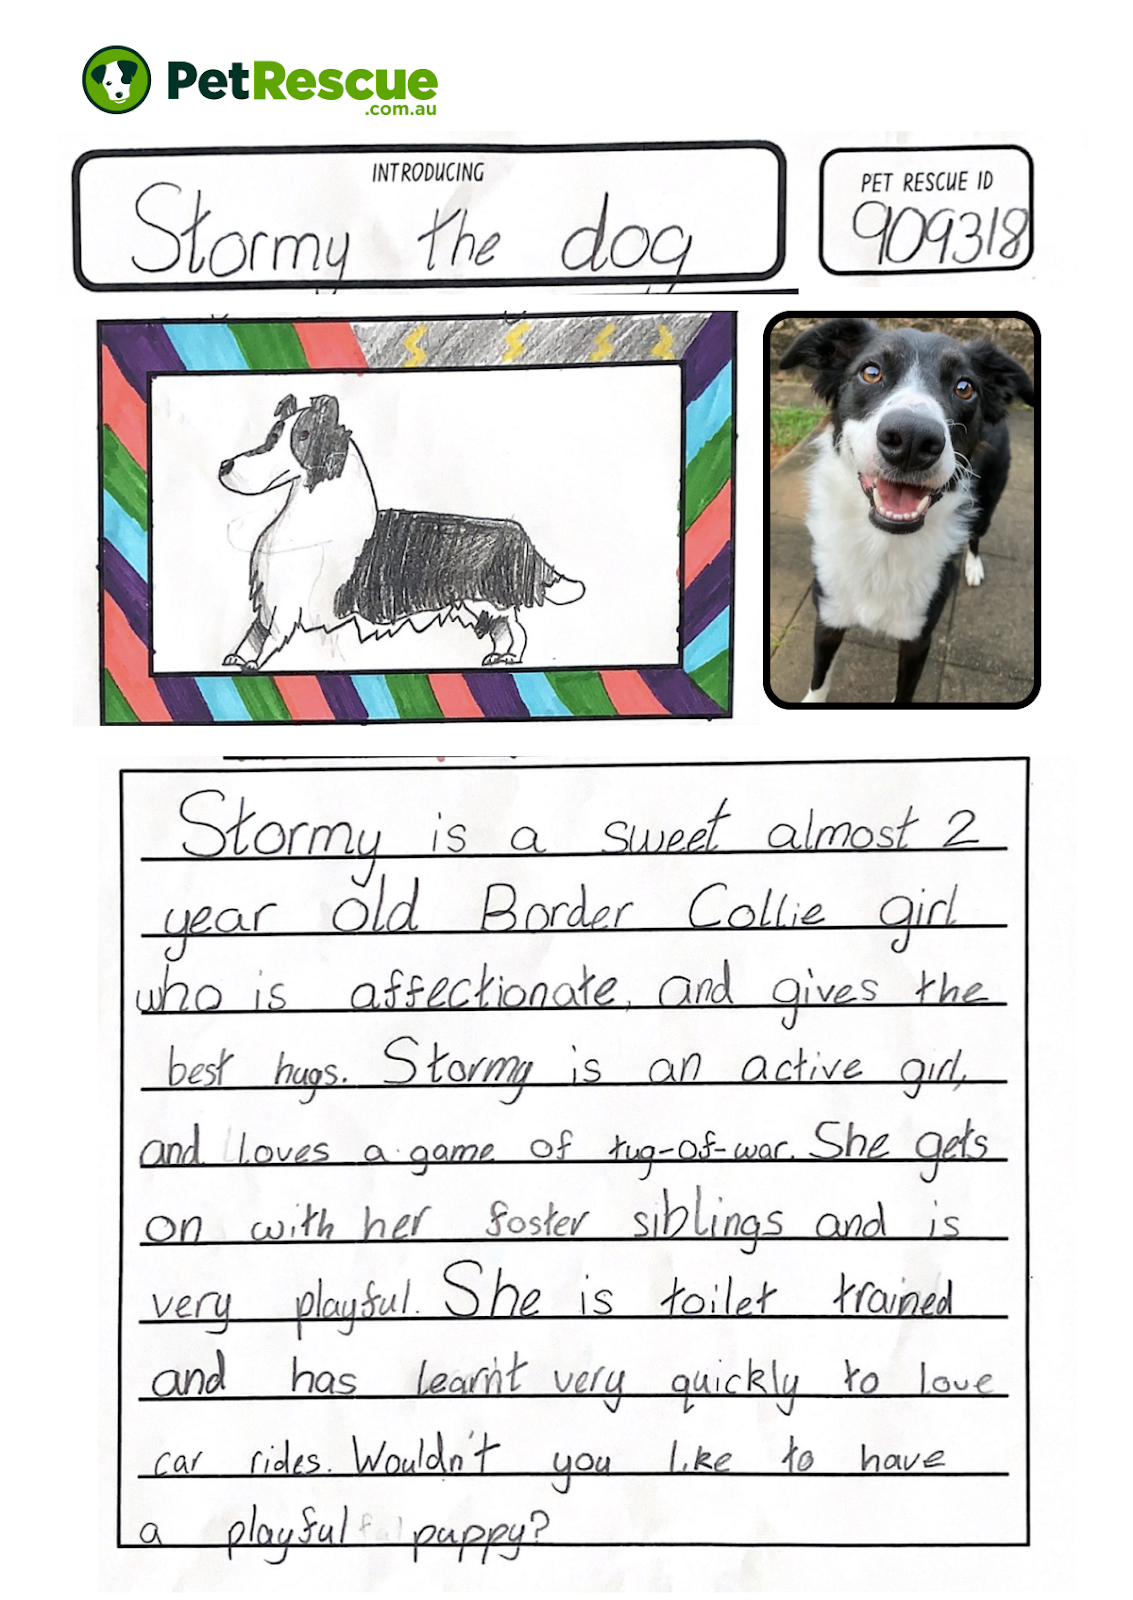 PetRescue
.com.au
INTRODUCING
Stormy the dog
PET RESCUE ID
909318
Stormy is a sweet almost 2
year old Border Collie girl
who is affectionate, and gives the
best hugs. Stormy is an active girl,
and loves a game of tug-of-war. She gets
on with her foster siblings and is
very playful. She is toilet trained
and has learnt very quickly to love
car rides. Wouldn't you like to have
a playful puppy?